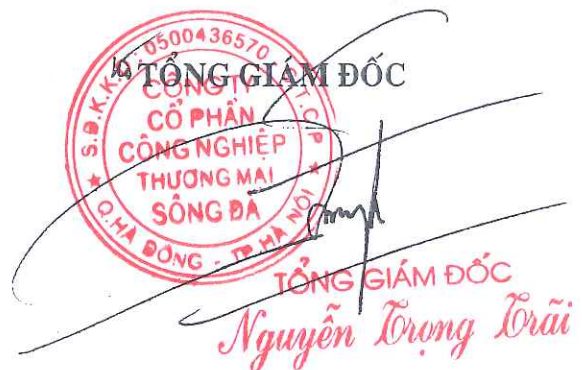 TỔNG GIÁM ĐỐC
S.Đ.K.K.D: 0500436570
C.T.C.P
CÔNG TY
CỔ PHẦN
CÔNG NGHIỆP
THƯƠNG MẠI
SÔNG ĐÀ
Q.HÀ ĐÔNG - TP.HÀ NỘI
TỔNG GIÁM ĐỐC
Nguyễn Trọng Trãi